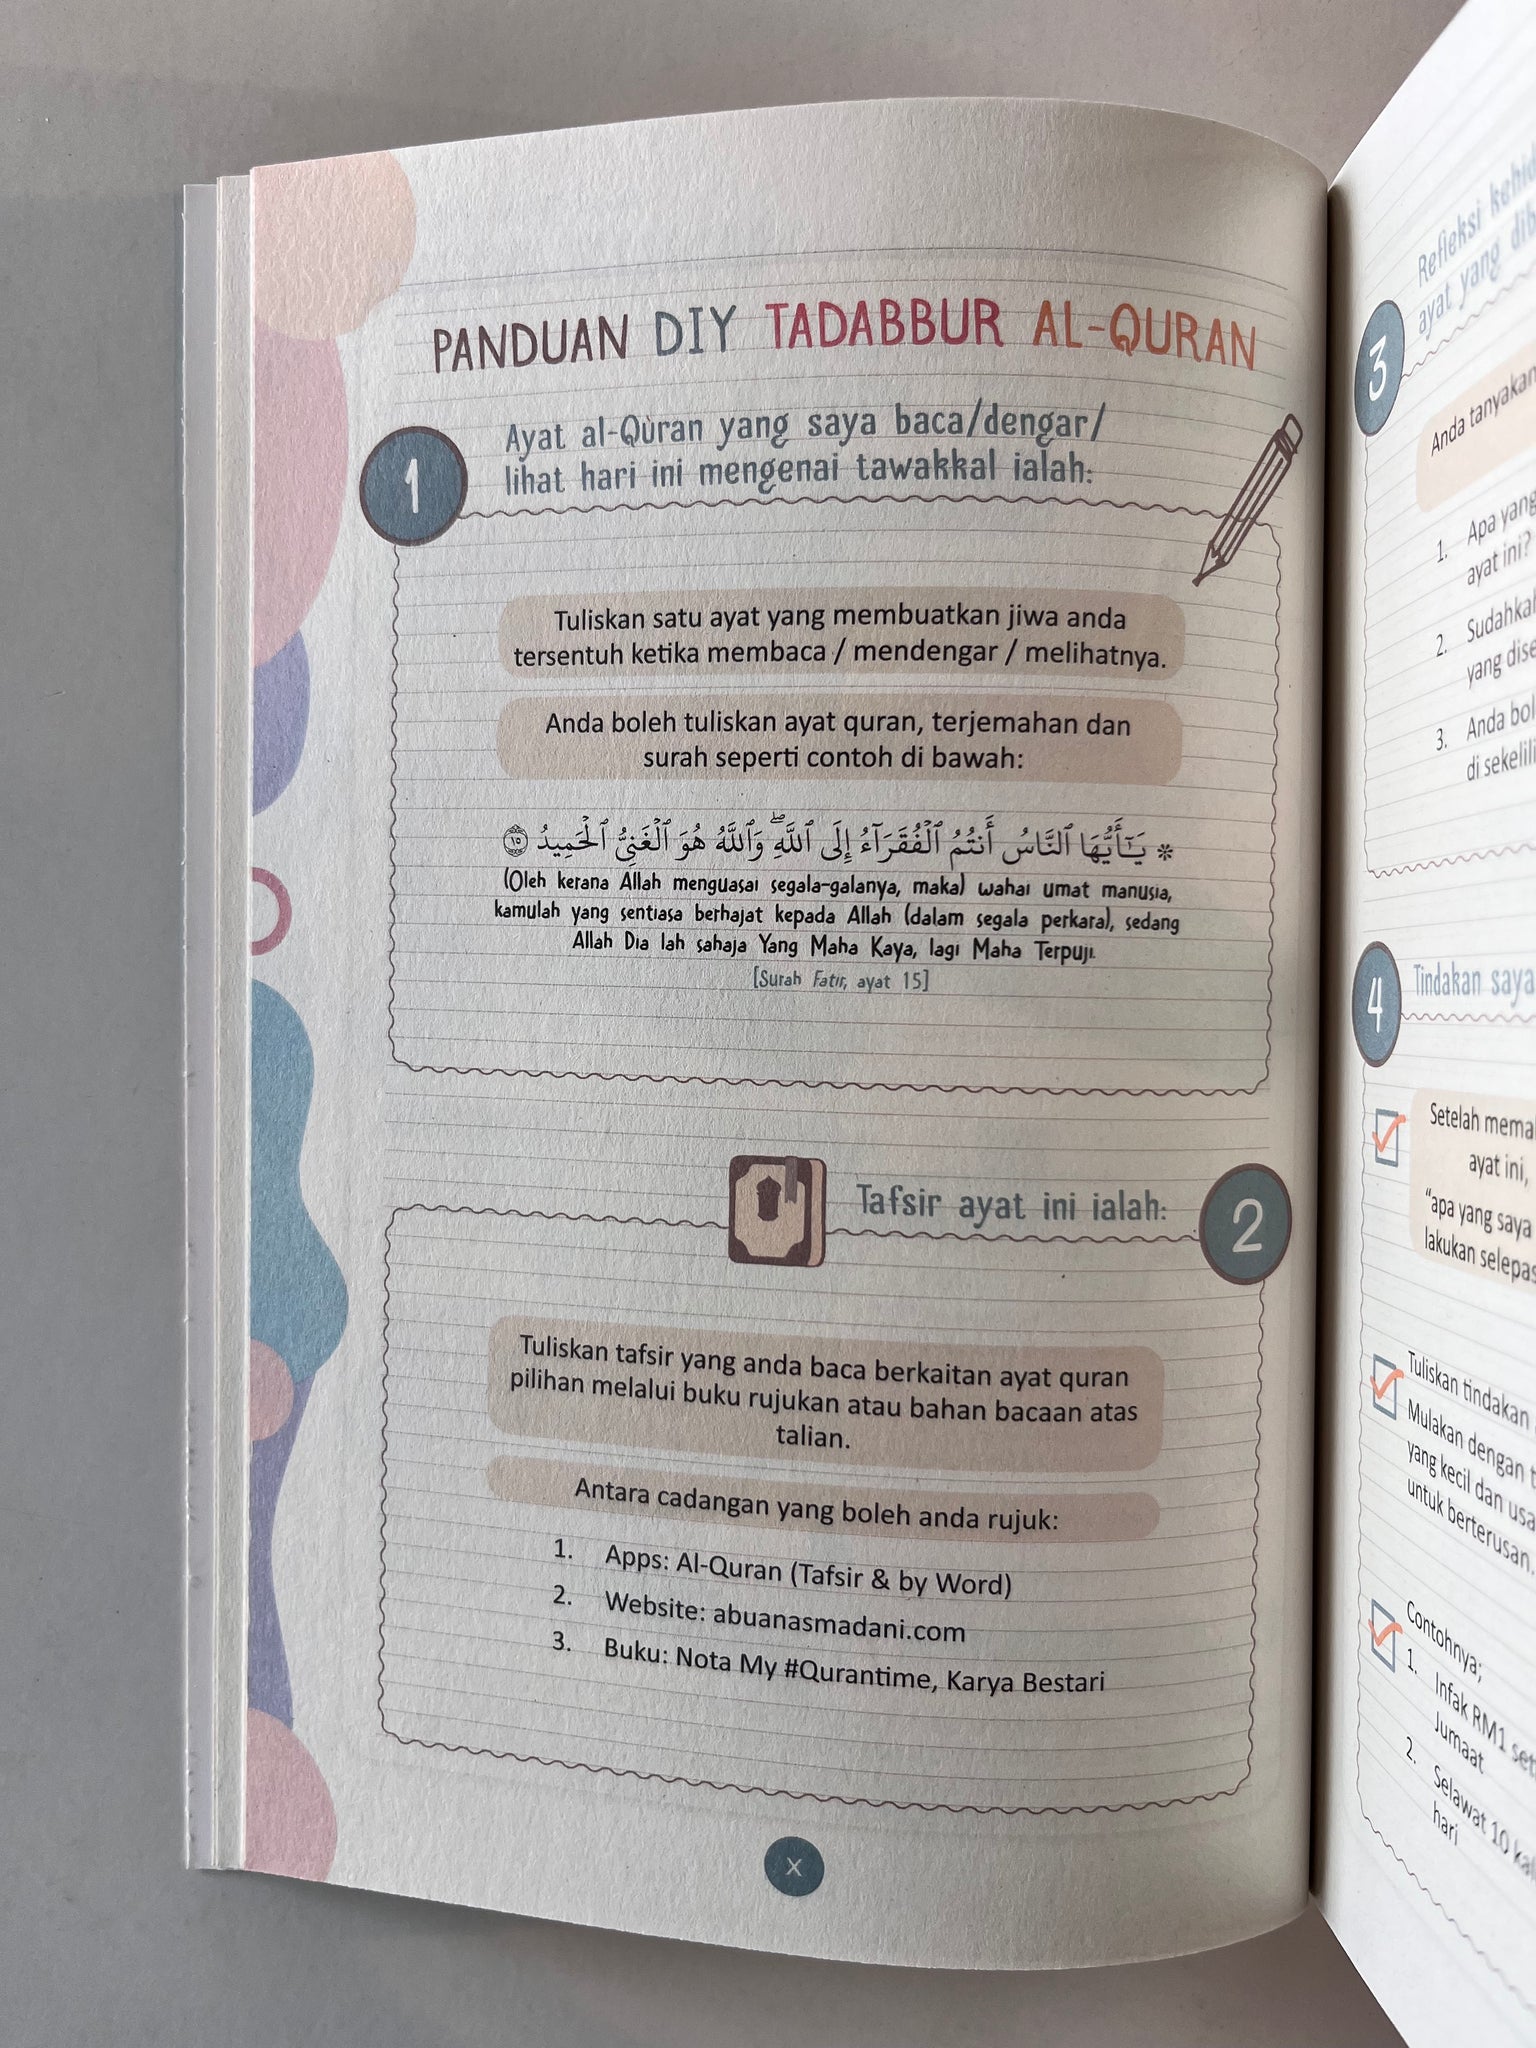 PANDUAN DIY TADABBUR AL-QURAN
1
Ayat al-Quran yang saya baca/dengar/
lihat hari ini mengenai tawakkal ialah:
Tuliskan satu ayat yang membuatkan jiwa anda
tersentuh ketika membaca / mendengar / melihatnya.
Anda boleh tuliskan ayat quran, terjemahan dan
surah seperti contoh di bawah:
۞ يَـٰٓأَيُّهَا ٱلنَّاسُ أَنتُمُ ٱلْفُقَرَآءُ إِلَى ٱللَّهِ ۖ وَٱللَّهُ هُوَ ٱلْغَنِىُّ ٱلْحَمِيدُ ١٥
(Oleh kerana Allah menguasai segala-galanya, maka) wahai umat manusia,
kamulah yang sentiasa berhajat kepada Allah (dalam segala perkara), sedang
Allah Dia lah sahaja Yang Maha Kaya, lagi Maha Terpuji.
[Surah Fatir, ayat 15]
Tafsir ayat ini ialah:
2
Tuliskan tafsir yang anda baca berkaitan ayat quran
pilihan melalui buku rujukan atau bahan bacaan atas
talian.
Antara cadangan yang boleh anda rujuk:
1. Apps: Al-Quran (Tafsir & by Word)
2. Website: abuanasmadani.com
3. Buku: Nota My #Qurantime, Karya Bestari
x
Refleksi
ayat yang
3
Anda tanyakan
1. Apa yang
ayat ini?
2. Sudahkah
yang
3. Anda
di
4
Tindakan saya
Setelah
ayat ini,
"apa yang saya
lakukan selepas
Tuliskan tindakan
Mulakan dengan
yang kecil dan
untuk berterusan.
Contohnya;
1. Infak RM1
Jumaat
2. Selawat 10
hari